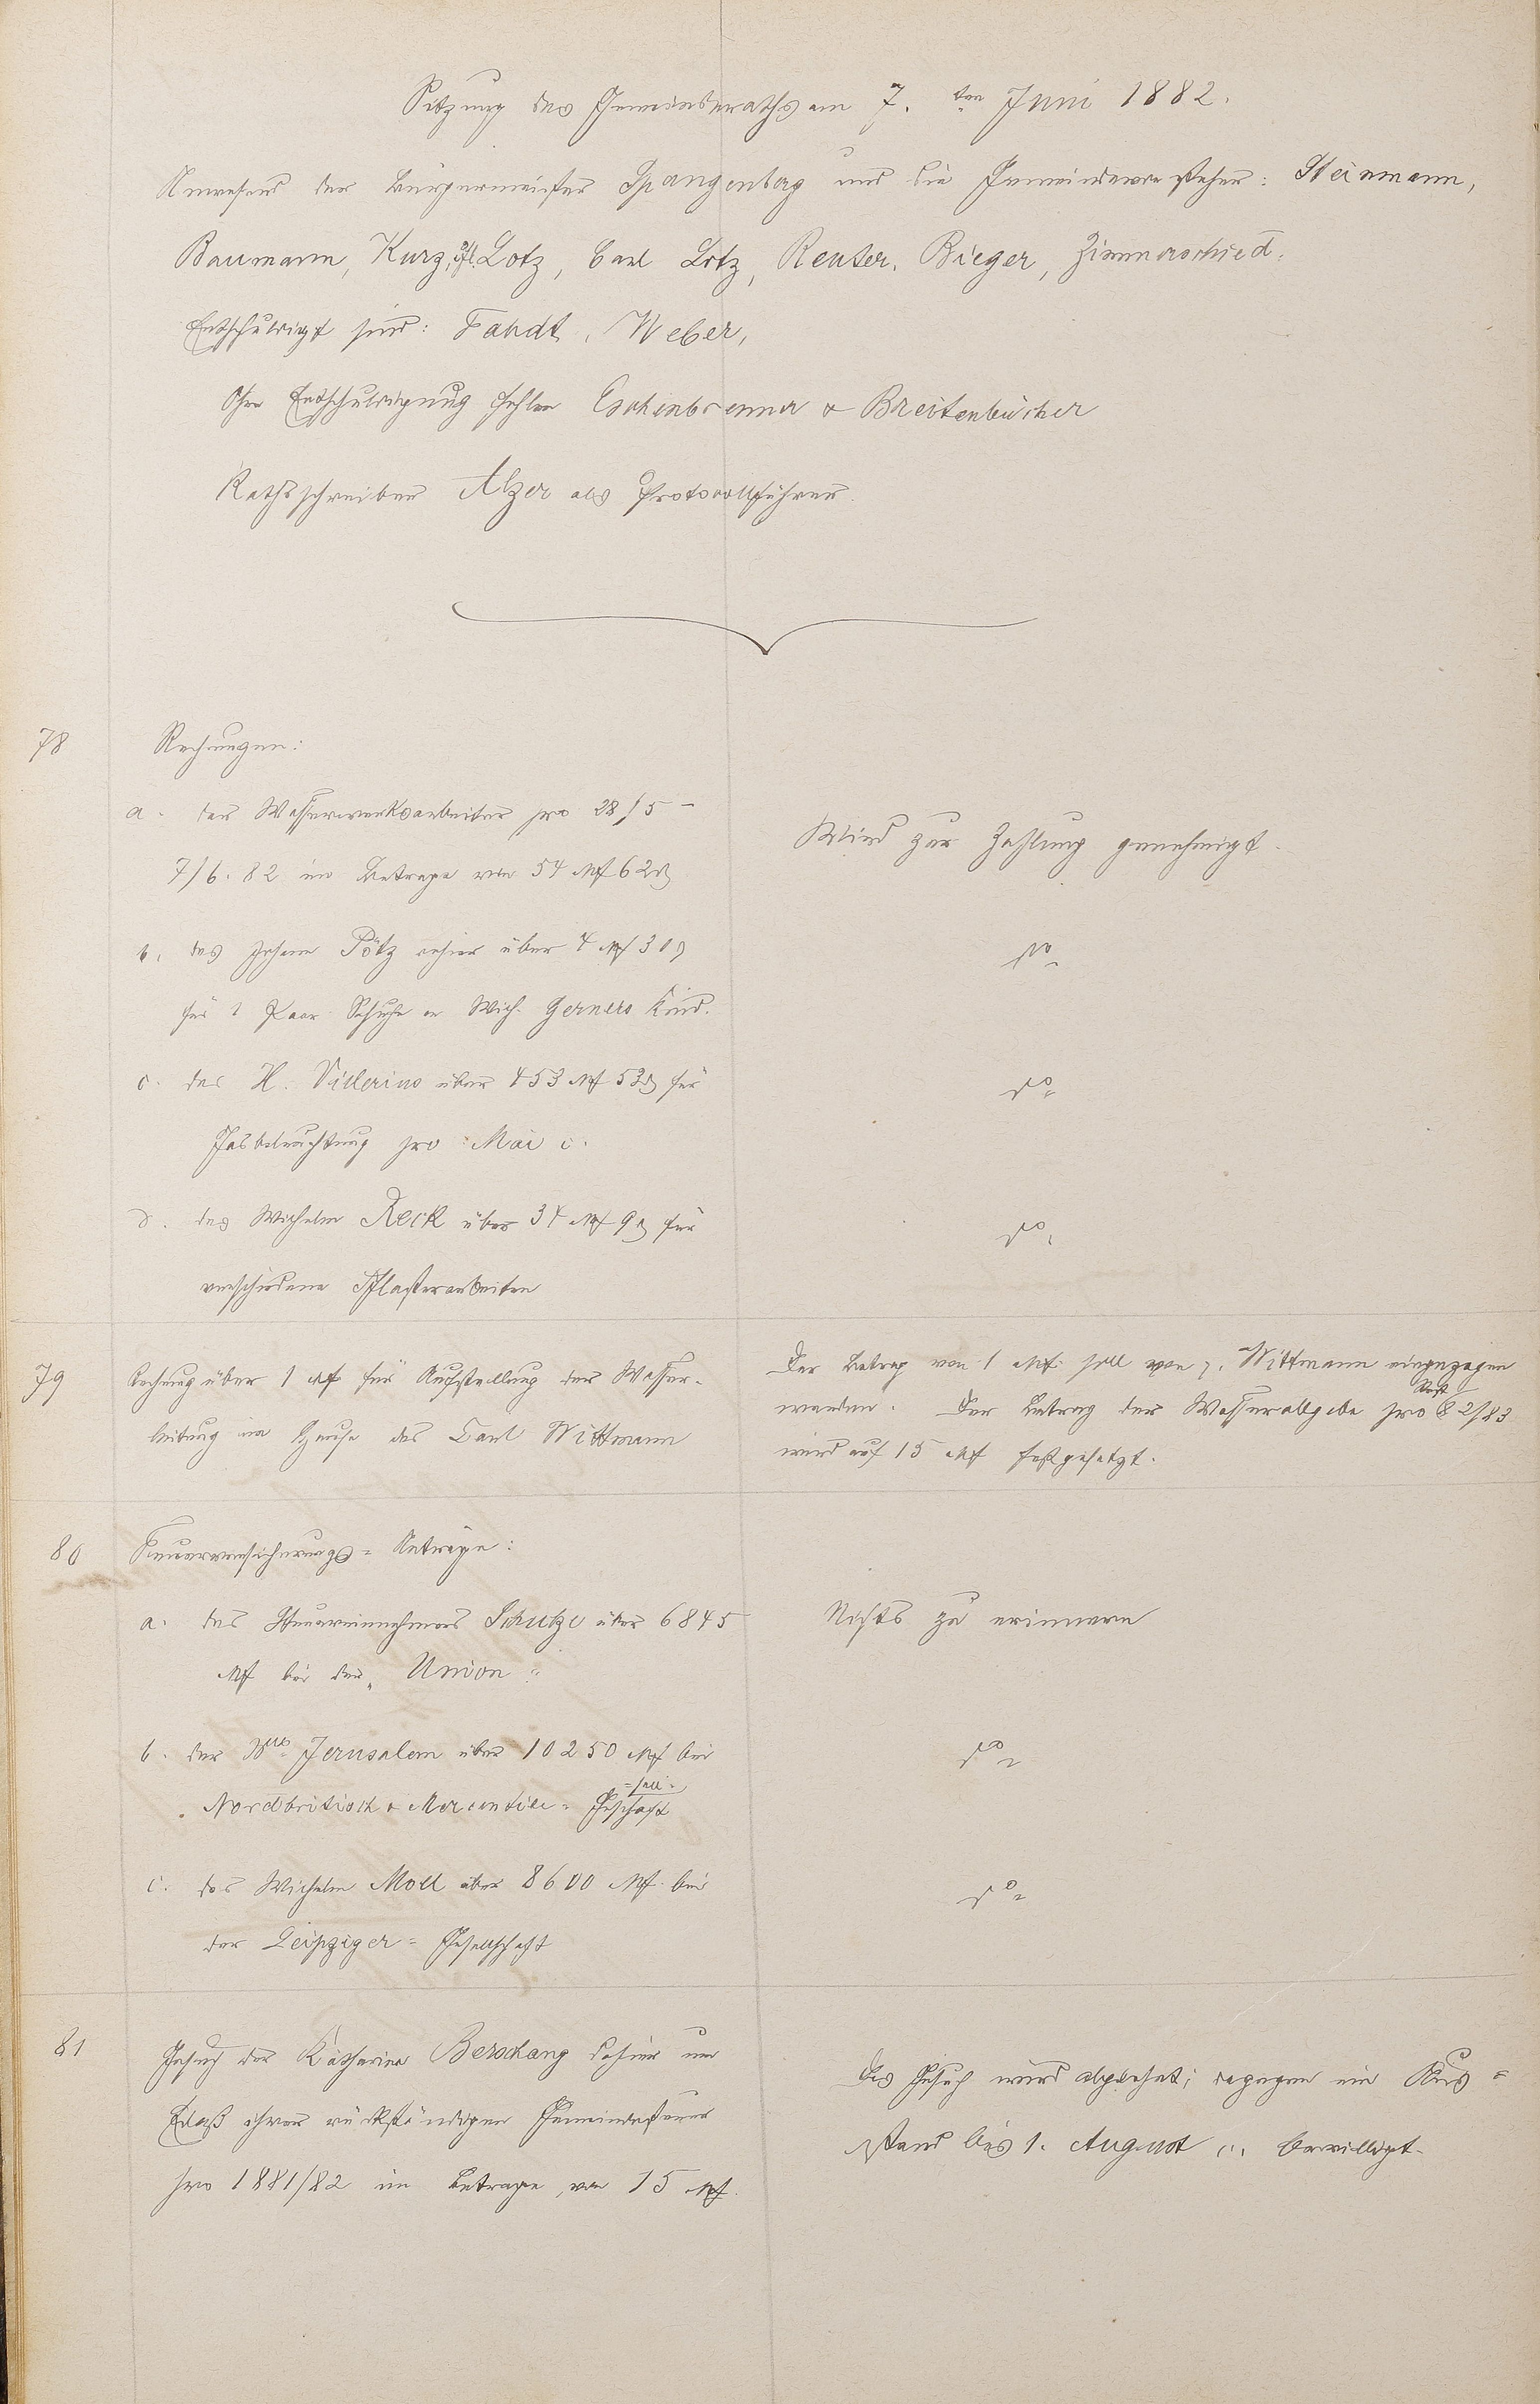 Sitzung des Gemeinderaths am 7. ten Juni 1882.
Anwesend der Bürgermeister Spangenberg und die Gemeindevorsteher: Steinmann,
Baumann, Kurz, Lotz, Carl Lotz, Reuter, Bieger, Zimmerschied.
Entschuldigt sind: Fandt, Weber,
Ohne Entschuldigung fehlen Eschenbrenner & Breitenbücher
Rathsschreiber Alzer als Protocollführer.
78
Rechnungen:
a. der Wasserwerksarbeiter pro 28/5 –
7/6. 82 im Betrage von 54 Mk 62 ₰
Wird zur Zahlung genehmigt.
b. des Johann Pötz dahier über 4 Mk 30 ₰
für 1 Paar Schuhe an Wilh. Gerners Kind.
do
c. des H. Villerius über 453 Mk 53 ₰ für
Gasbeleuchtung pro Mai c.
do
d. des Wilhelm Reck über 34 Mk 9 ₰ für
verschiedene Pflasterarbeiten
do
79
Rechnung über 1 Mk für Aufstellung der Wasser-
leitung im Hause des Carl Wittmann
Der Betrag von 1 Mk. soll von p. Wittmann eingezogen
werden. Der Betrag der Wasserabgabe pro 82/83
wird auf 15 Mk festgesetzt.
80
Feuerversicherungs-Anträge:
a. des Steuereinnehmers Schutze über 6845
Mk bei der „Union“
Nichts zu erinnern
b. der Wwe Jerusalem über 10250 Mk bei
Nordbritisch & Mercantile-Geschaft
=sell=
do
c. des Wilhelm Moll über 8600 Mk. bei
der Leipziger-Gesellschaft
do
81
Gesuch der Katharina Berschang dahier um
Erlaß ihrer rückständigen Gemeindesteuer
pro 1881/82 im Betrage von 15 Mk.
Das Gesuch wird abgelehnt; dagegen ein Aus-
stand bis 1. August c. bewilligt.